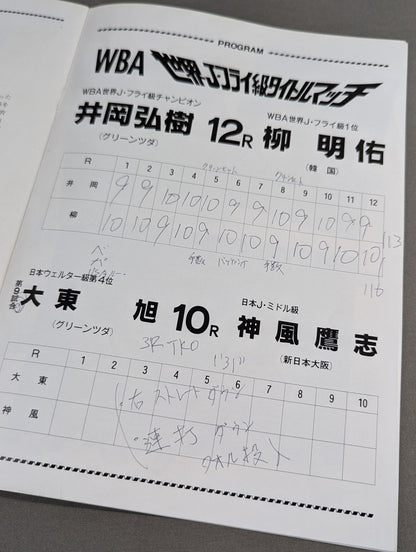 PROGRAM
WBA 世界J・フライ級タイトルマッチ
WBA世界J・フライ級チャンピオン
WBA世界J・フライ級1位
井岡弘樹 12R 柳 明佑
(グリーンツダ)
(韓国)
R 1 2 3 4 5 6 7 8 9 10 11 12
井岡 9 9 10 10 10 9 9 10 9 10 9 9
113
柳 10 10 10 9 9 10 10 9 10 9 10 10
116
手数 手数
日本ウェルター級第4位
日本J・ミドル級
第9試合
大東 旭 10R 神風鷹志
(グリーンツダ)
(新日本大阪)
3R TKO 1'31"
R 1 2 3 4 5 6 7 8 9 10
大東
・右ストレート ダウン
神風
・連打 ダウン
タオル投入